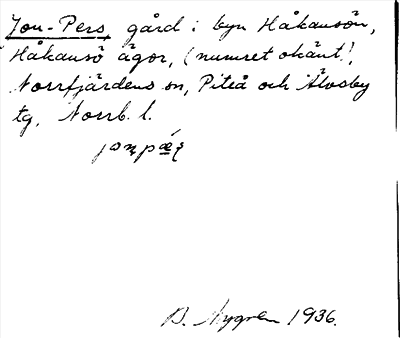 Jon-Pers gård i byn Håkansön,
Håkansö ägor, (numret okänt),
Norrfjärdens sn, Piteå och Älvsby
tg, Norrb. l.
B. Nygren 1936.